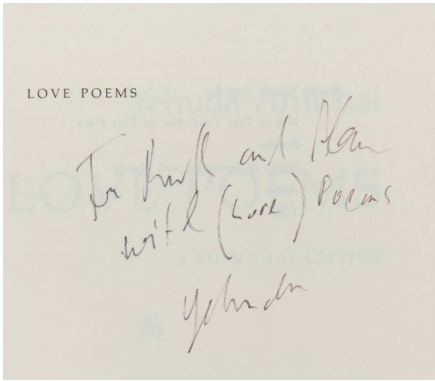 LOVE POEMS
For and Alan
with (Love) Poems
Yehuda